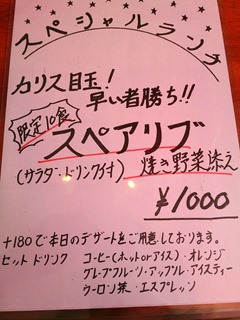 スペシャルランチ
カリス目玉!
早い者勝ち!!
限定10食
スペアリブ
(サラダ・ドリンク付) 焼き野菜添え
¥1000
+180で本日のデザートをご用意しております。
セットドリンク コーヒー(ホットorアイス)・オレンジ
グレープフルーツ・アップル・アイスティー
ウーロン茶・エスプレッソ